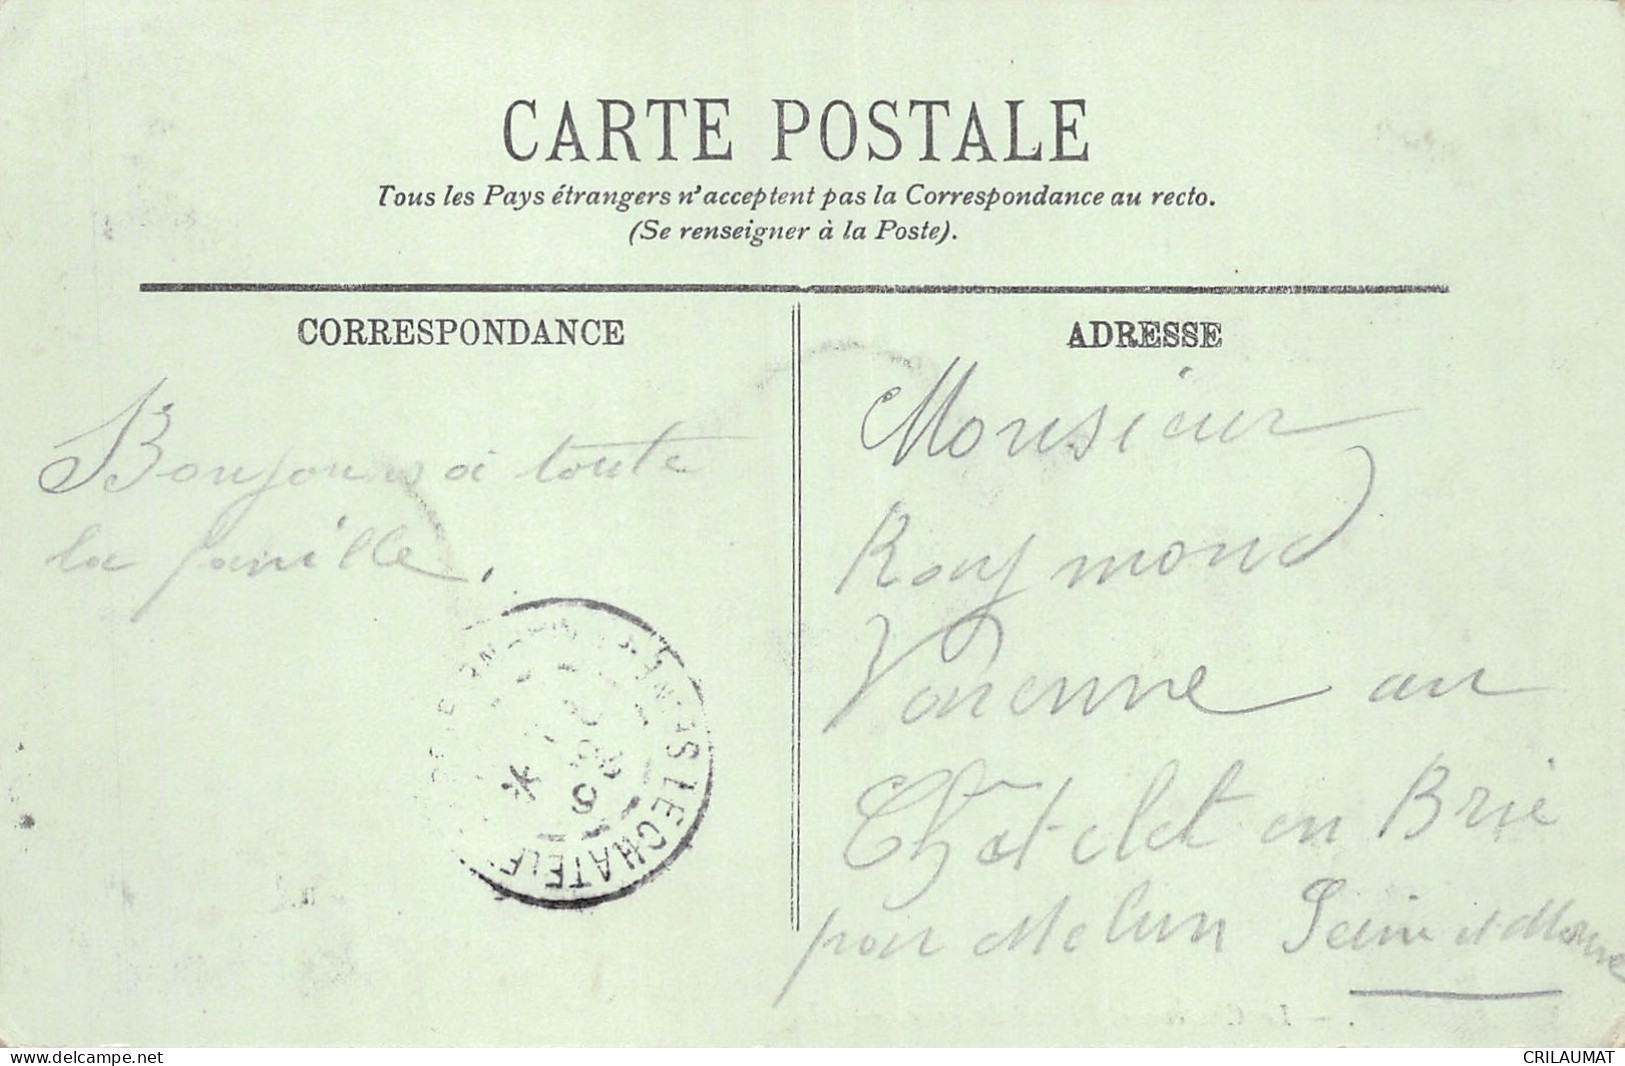 CARTE POSTALE
Tous les Pays étrangers n'acceptent pas la Correspondance au recto.
(Se renseigner à la Poste).
CORRESPONDANCE
ADRESSE
Bonjours à toute
la famille.
Monsieur
Raymond
Varenne au
Châtelet en Brie
pour Melun Seine et Marne
LE CHATELE
delcampe.net
CRILAUMAT